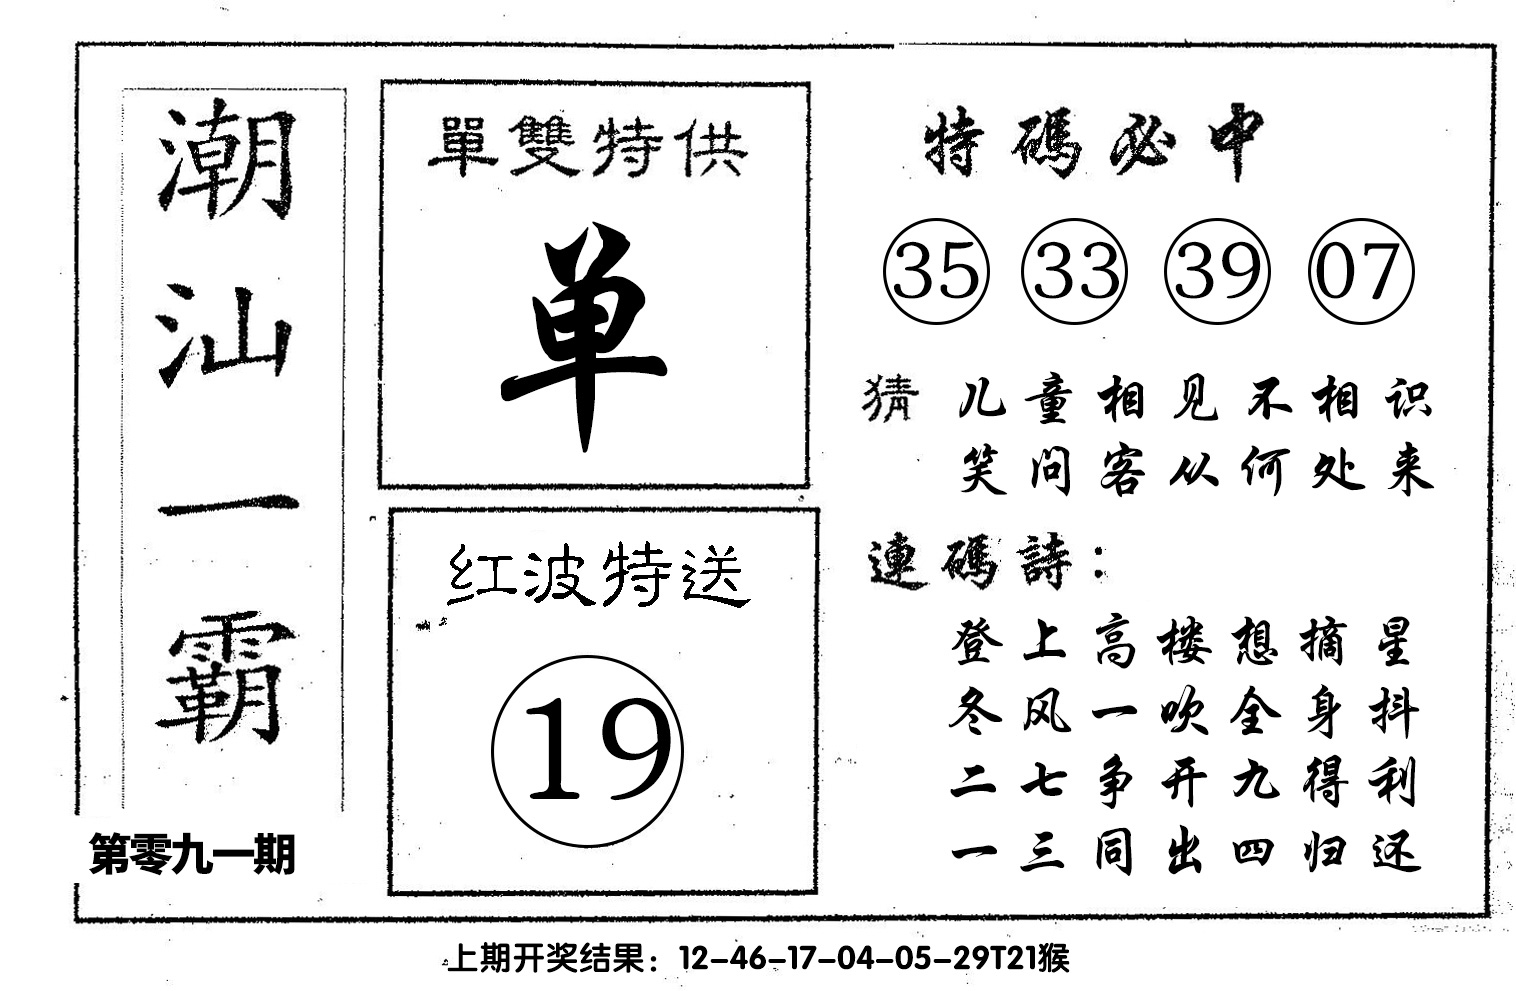 潮汕一霸
第零九一期
單雙特供
单
红波特送
19
特碼必中
35 33 39 07
猜 儿童相见不相识
笑问客从何处来
連碼詩：
登上高楼想摘星
冬风一吹全身抖
二七争开九得利
一三同出四归还
上期开奖结果：12-46-17-04-05-29T21猴